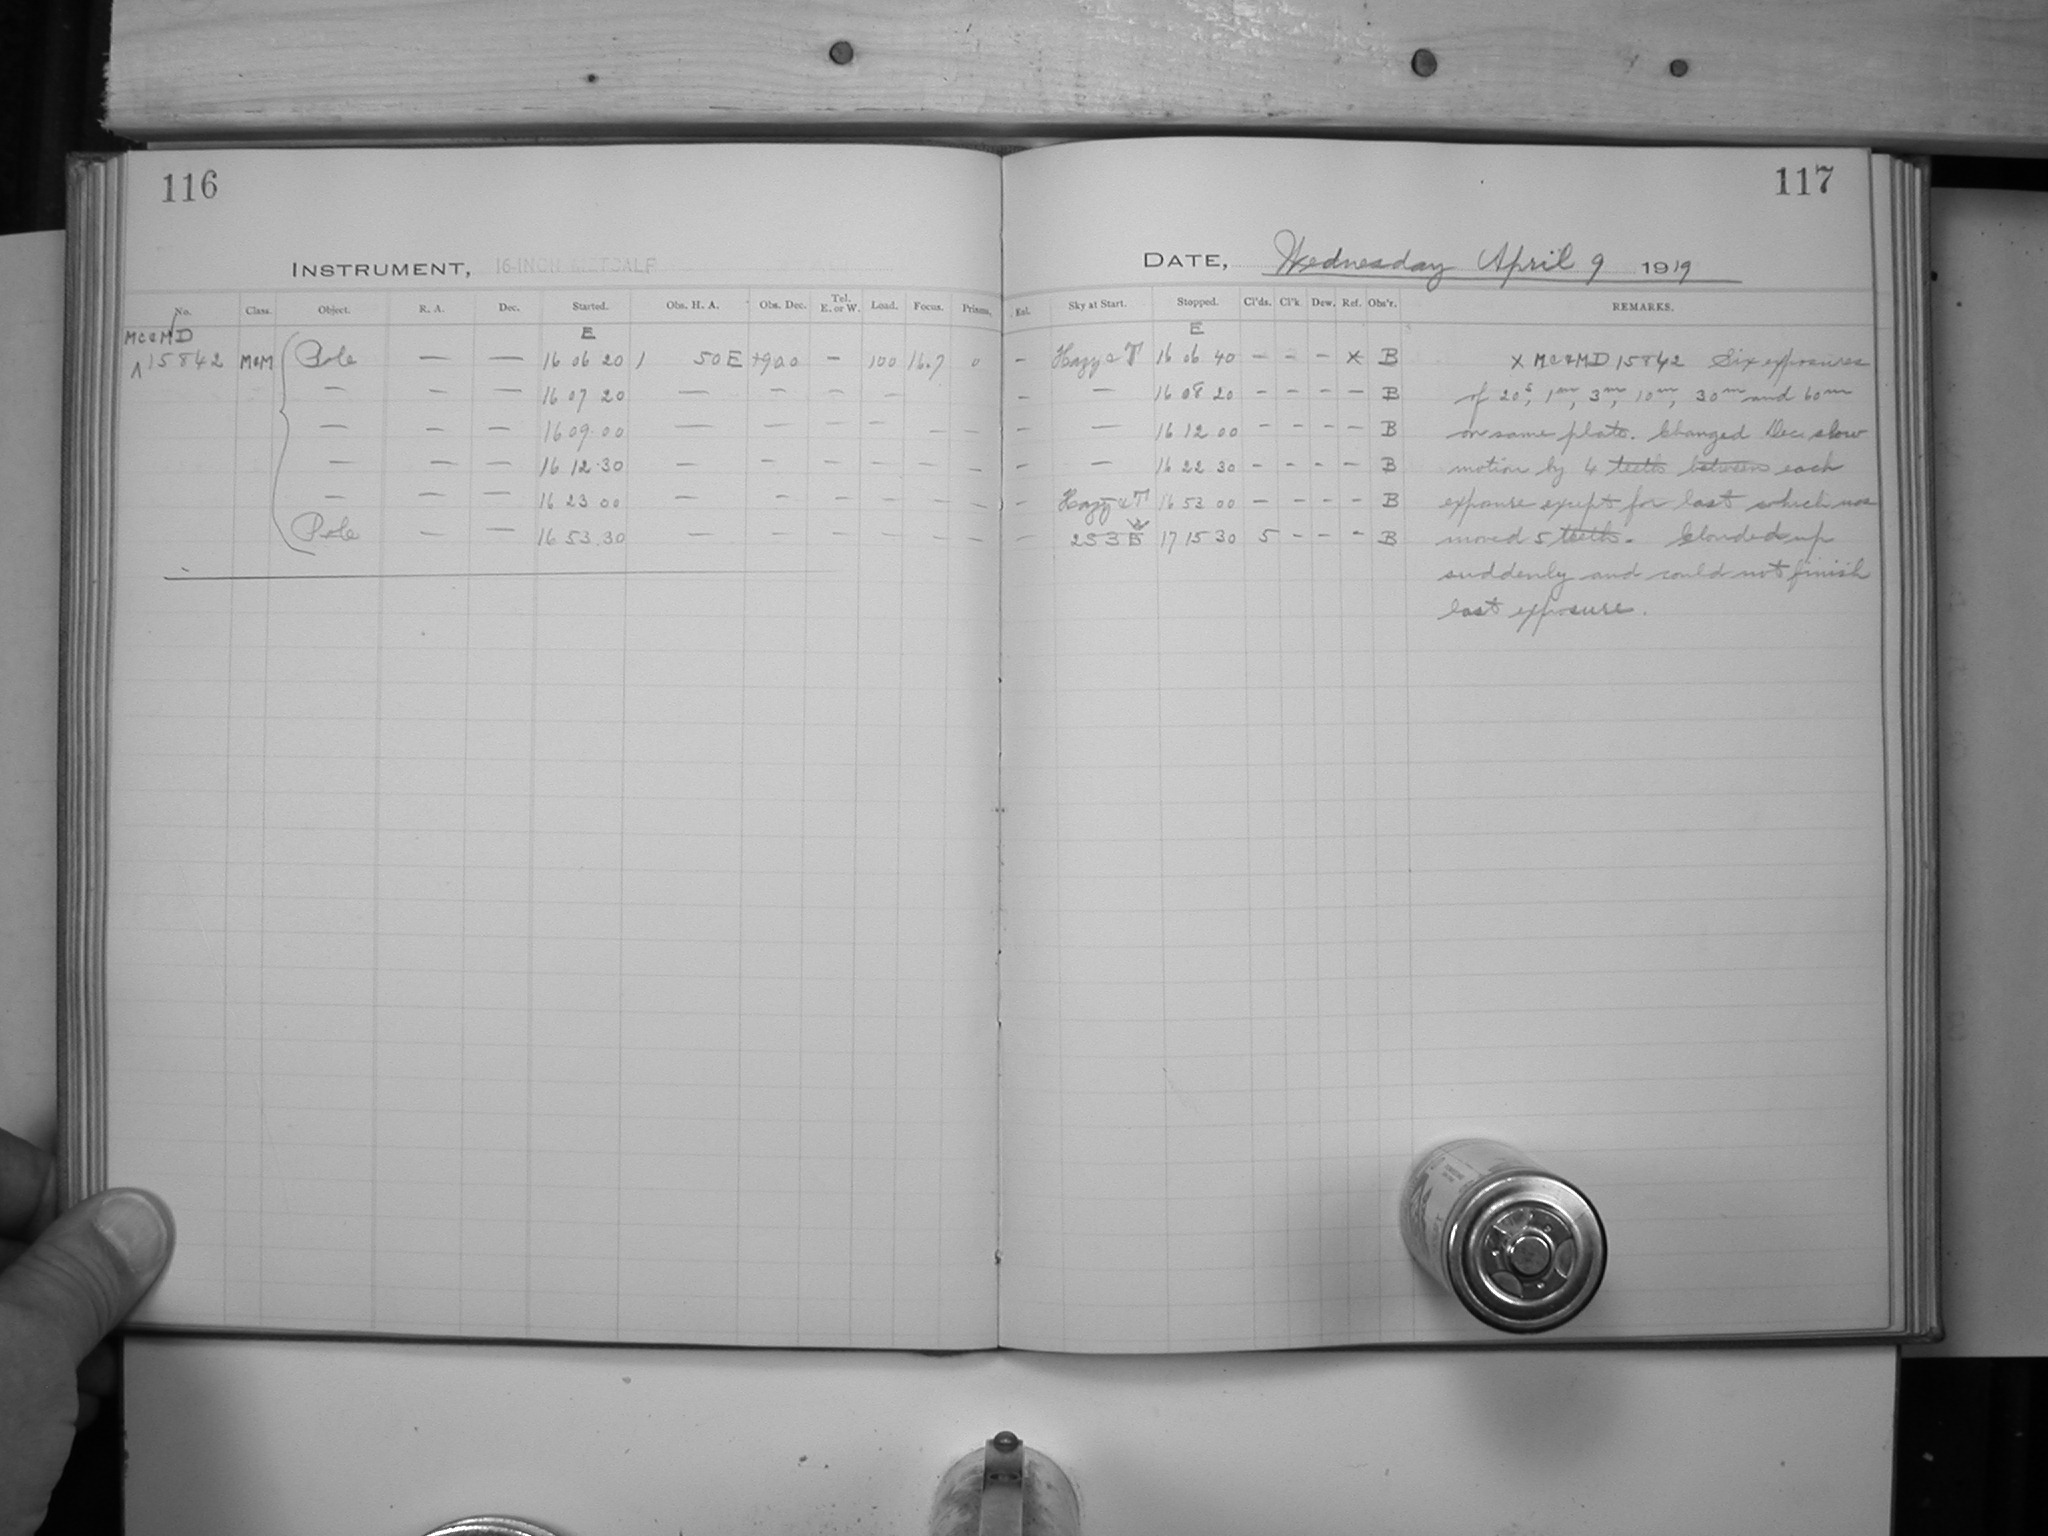 116
INSTRUMENT, 16-INCH METCALF
No. Class. Object. R. A. Dec. Started. Obs. H. A. Obs. Dec. Tel. E. or W. Load. Focus. Prisms.
MC&MD E
15842 M&M Pole — — 16 06 20 1 50 E +90.0 — 100 16.7 0
— — — 16 07 20 — — — — —
— — — 16 09 00 — — — — — — —
— — — 16 12 30 — — — — — — —
— — — 16 23 00 — — — — — — —
Pole — — 16 53 30 — — — — — — —
117
DATE, Wednesday April 9 1919
Sky at Start. Stopped. Cl'ds. Cl'k Dew. Ref. Obs'r. REMARKS.
E
— Hazy & T 16 06 40 — — — X B X MC&MD 15842 Six exposures
— — 16 08 20 — — — — B of 20s, 1m, 3m, 10m, 30m and 60m
— — 16 12 00 — — — — B on same plate. Changed Dec slow
— — 16 22 30 — — — — B motion by 4 teeth between each
— Hazy & T 16 53 00 — — — — B exposure except for last which was
— 17 15 30 5 — — — B moved 5 teeth. Clouded up
suddenly and could not finish
last exposure.